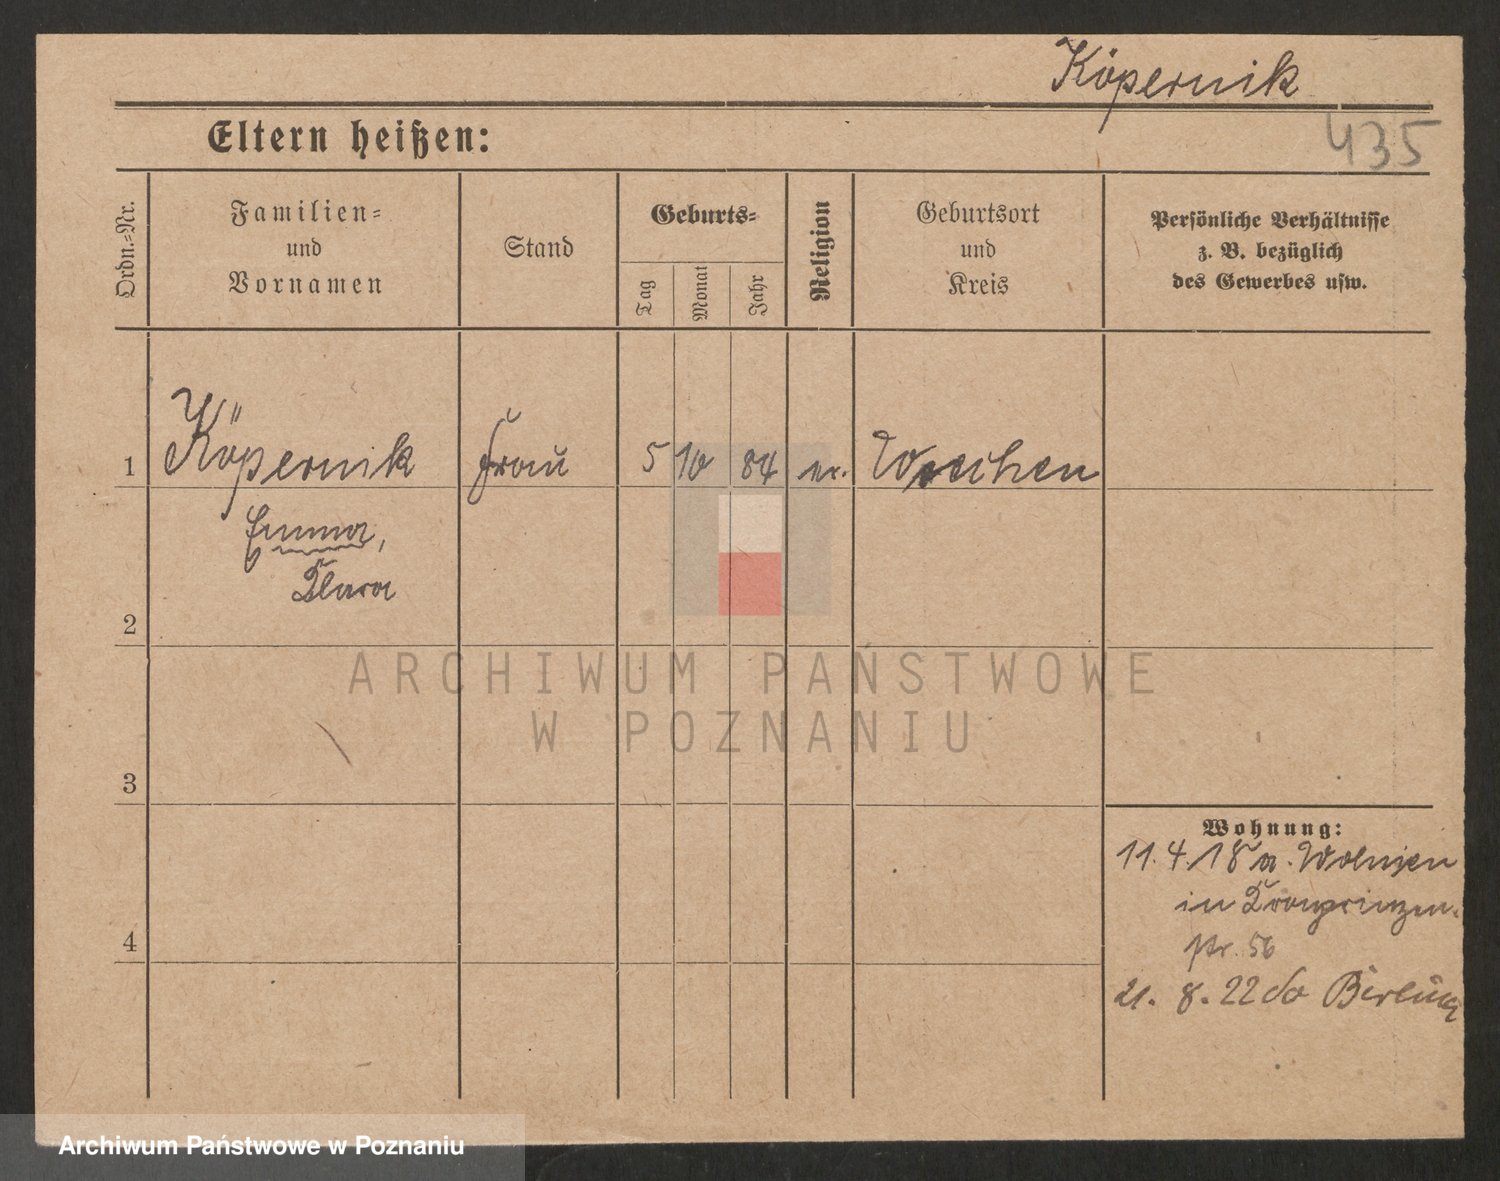 Köpernik
Eltern heißen:
435
Ordn.-Nr.
Familien-
und
Vornamen
Stand
Geburts-
Tag
Monat
Jahr
Religion
Geburtsort
und
Kreis
Persönliche Verhältnisse
z. B. bezüglich
des Gewerbes usw.
1 Köpernik Frau 5 10 84
Emma,
Klara
2
ARCHIWUM PAŃSTWOWE
W POZNANIU
3
Wohnung:
11.4.18 a.
in Kronprinzen-
str. 56
4
21. 8. 22
Archiwum Państwowe w Poznaniu